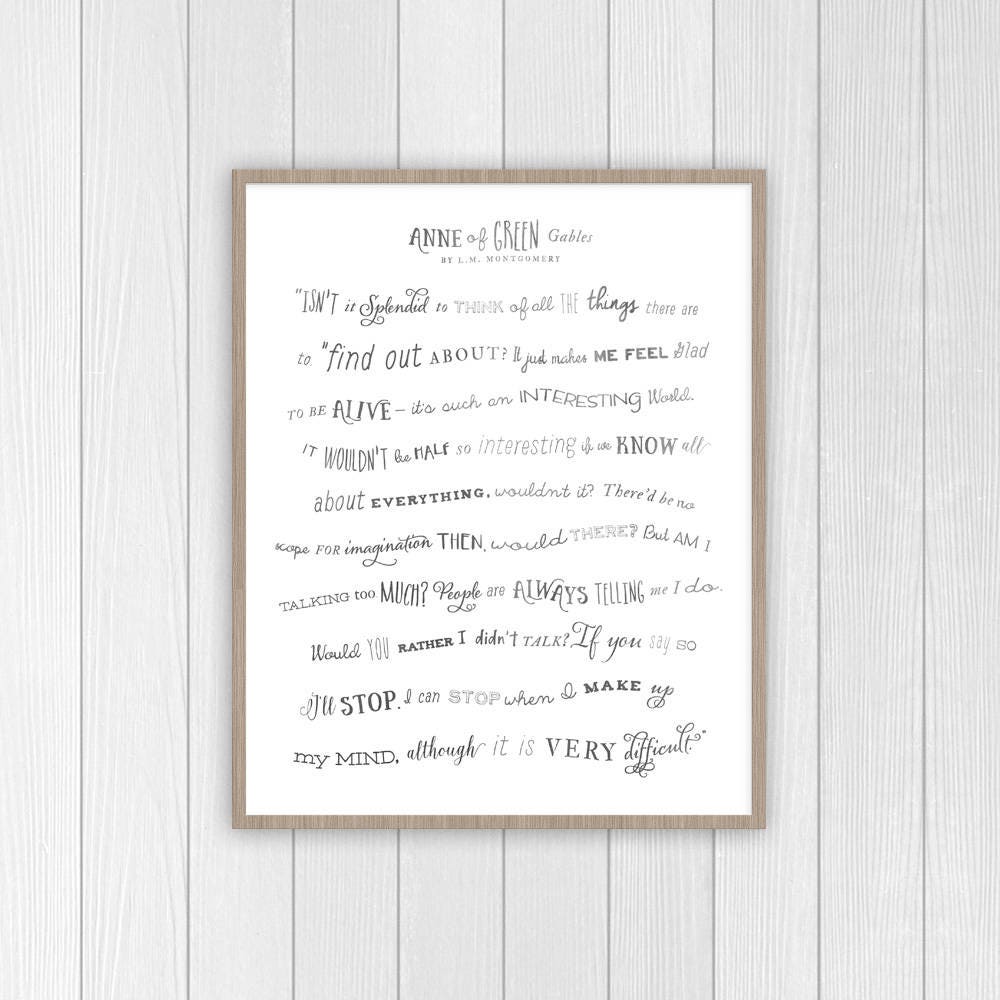 ANNE of GREEN Gables
BY L.M. MONTGOMERY
"ISN'T it Splendid to THINK of all THE things there are
to "find out ABOUT? It just makes ME FEEL Glad
TO BE ALIVE – it's such an INTERESTING World.
IT WOULDN'T be HALF so interesting if we KNOW all
about EVERYTHING, wouldnt it? There'd be no
scope FOR imagination THEN, would THERE? But AM I
TALKING too MUCH? People are ALWAYS TELLING me I do.
Would YOU RATHER I didn't TALK? If you say so
I'll STOP. I can STOP when I MAKE up
my MIND, although it is VERY difficult."